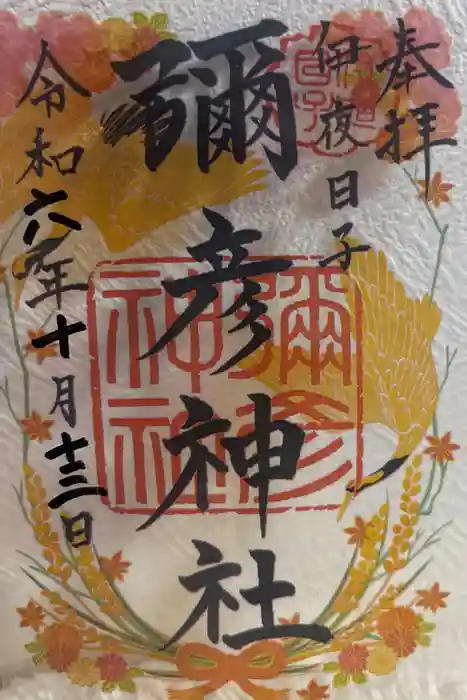 奉拝
伊夜日子
彌彦神社
彌彦
神社
令和六年十月十三日